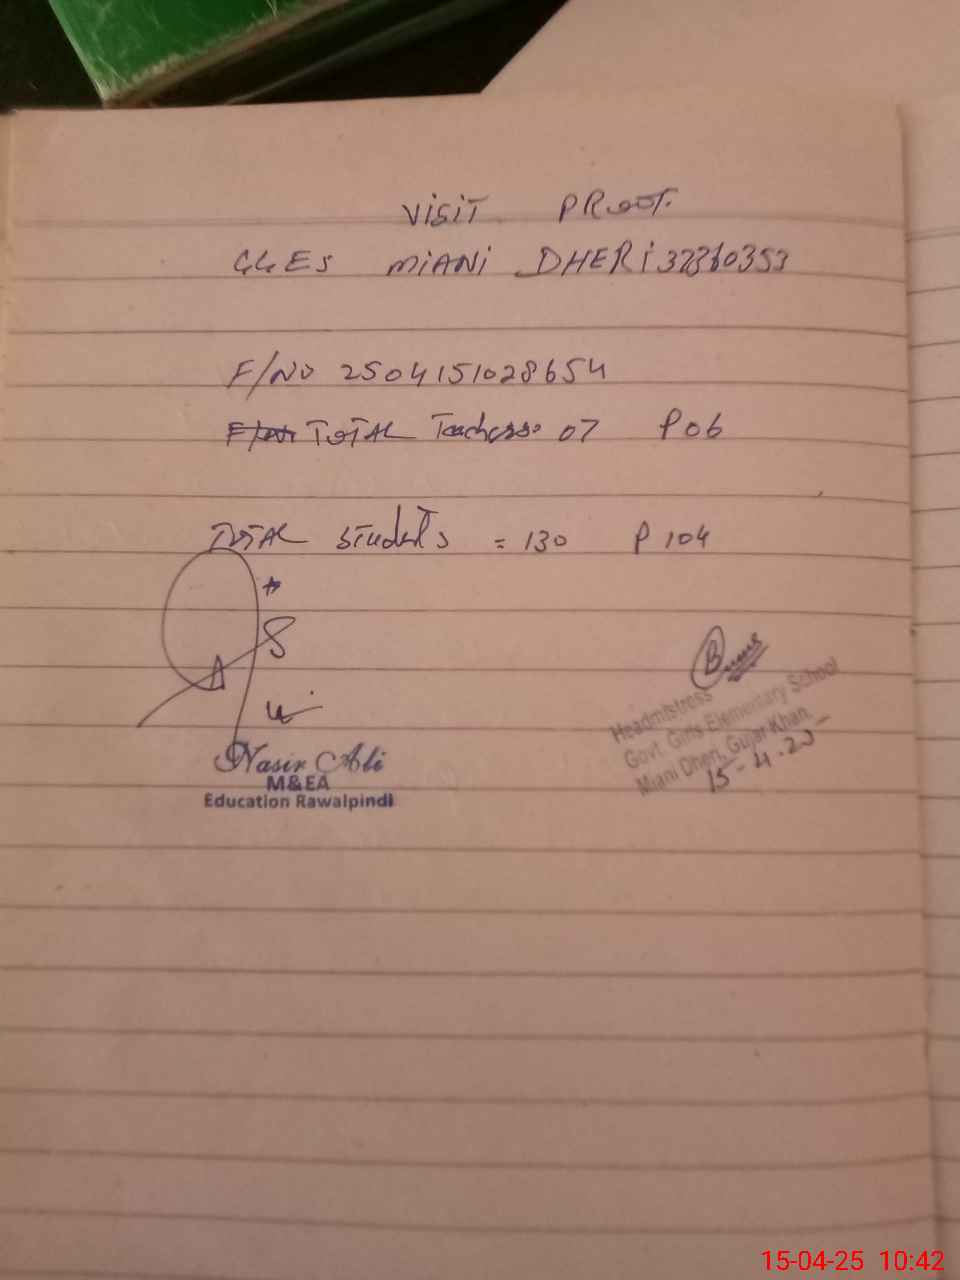 VISIT PROOF.
GGES MIANI DHERI 37360353
F/NO 2504151028654
TOTAL Teachers 07 P 06
TOTAL Students = 130 P 104
Nasir Ali
M&EA
Education Rawalpindi
Headmistress
Govt. Girls Elementary School
Miani Dheri, Gujar Khan.
15-4-25
15-04-25 10:42